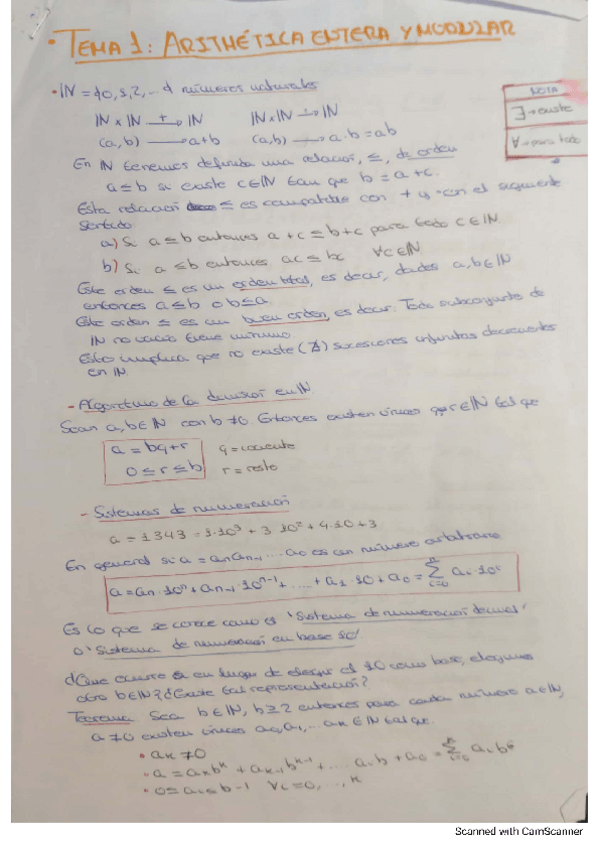 • TEMA 1: ARITMÉTICA ENTERA Y MODULAR
• IN = {0,1,2,...} números naturales
NOTA
∃ → existe
∀ → para todo
IN x IN —+→ IN    IN x IN —·→ IN
(a,b) ⟶ a+b    (a,b) ⟶ a·b = ab
En IN tenemos definida una relación, ≤, de orden
a ≤ b si existe c ∈ IN tal que b = a + c.
Esta relación ≤ es compatible con + y · con el siguiente
sentido
a) Si a ≤ b entonces a + c ≤ b + c para todo c ∈ IN.
b) Si a ≤ b entonces ac ≤ bc    ∀c ∈ IN.
Este orden ≤ es un orden total, es decir, dados a,b ∈ IN
entonces a ≤ b o b ≤ a.
Este orden ≤ es un buen orden, es decir. Todo subconjunto de
IN no vacío tiene mínimo
Esto implica que no existe (∄) sucesiones infinitas decrecientes
en IN.
- Algoritmo de la división en IN.
Sean a,b ∈ IN con b ≠ 0. Entonces existen únicos q,r ∈ IN tal que
a = bq + r    q = cociente
0 ≤ r ≤ b    r = resto
- Sistemas de numeración
a = 1343 = 1·10³ + 3·10² + 4·10 + 3
En general si a = aₙaₙ₋₁ ... a₀ es un número arbitrario
a = aₙ·10ⁿ + aₙ₋₁·10ⁿ⁻¹ + .... + a₁·10 + a₀ = Σⁿᵢ₌₀ aᵢ·10ⁱ
Es lo que se conoce como el 'Sistema de numeración decimal'
o 'Sistema de numeración en base 10'
¿Qué ocurre si en lugar de elegir el 10 como base, elegimos
otro b ∈ IN? ¿Existe tal representación?
Teorema. Sea b ∈ IN, b ≥ 2 entonces para cada número a ∈ IN,
a ≠ 0 existen únicos a₀, a₁, ... aₖ ∈ IN tal que.
• aₖ ≠ 0
• a = aₙbᵏ + aₖ₋₁bᵏ⁻¹ + .... a₁b + a₀ = Σ aᵢbⁱ
• 0 ≤ aᵢ ≤ b-1    ∀i = 0, ..., k
Scanned with CamScanner